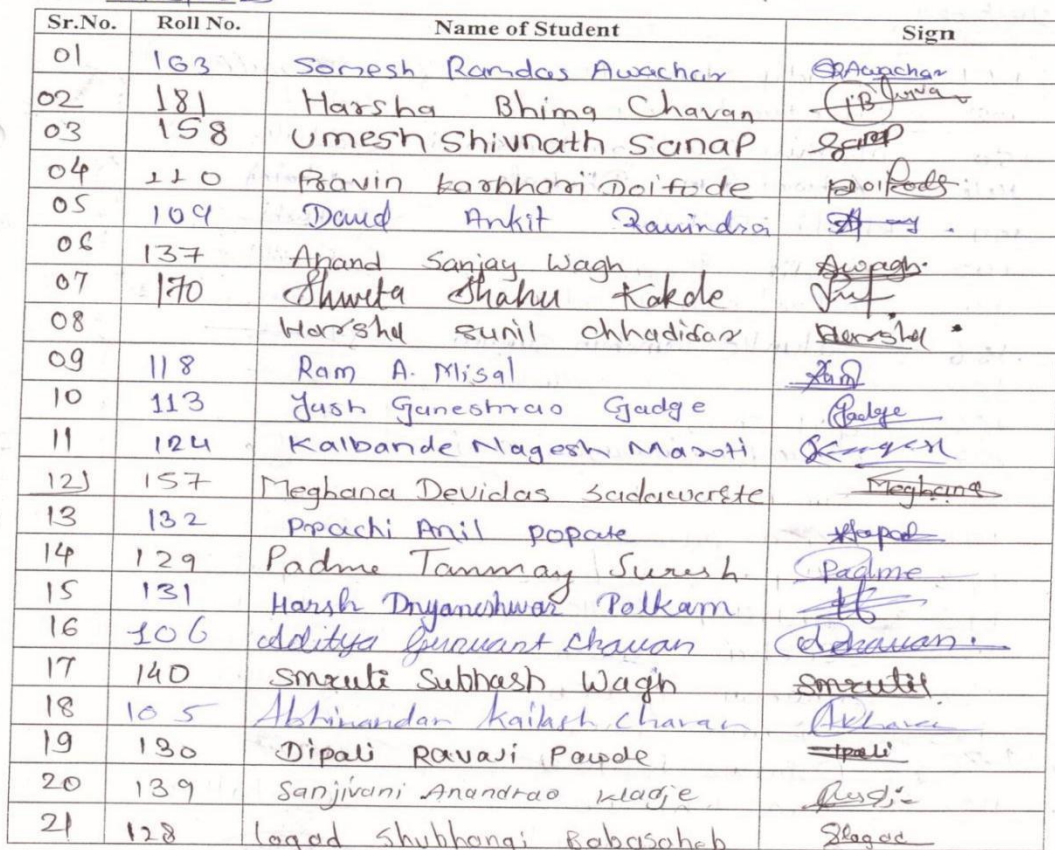 Sr.No. Roll No. Name of Student Sign
01 163 Somesh Ramdas Awachar SRAwachar
02 181 Harsha Bhima Chavan
03 158 Umesh Shivnath Sanap Sanap
04 110 Pravin Karbhari Doifode Doifode
05 109 Daud Ankit Ravindra
06 137 Anand Sanjay Wagh Awagh.
07 170 Shweta Shahu Kakde
08 Harsha Sunil Chhadidar Harsha
09 118 Ram A. Misal Ram
10 113 Yash Ganeshrao Gadge Gadge
11 124 Kalbande Nagesh Maroti
12 157 Meghana Devidas Sadawarte Meghana
13 132 Prachi Anil Popate
14 129 Padme Tanmay Suresh Padme
15 131 Harsh Dnyaneshwar Polkam
16 106 Aditya Gunwant Chavan AChavan.
17 140 Smruti Subhash Wagh Smruti
18 105 Abhinandan Kailash Chavan
19 130 Dipali Ravaji Pawde Dipali
20 139 Sanjivani Anandrao
21 128 Lagad Shubhangi Babasaheb Slagad